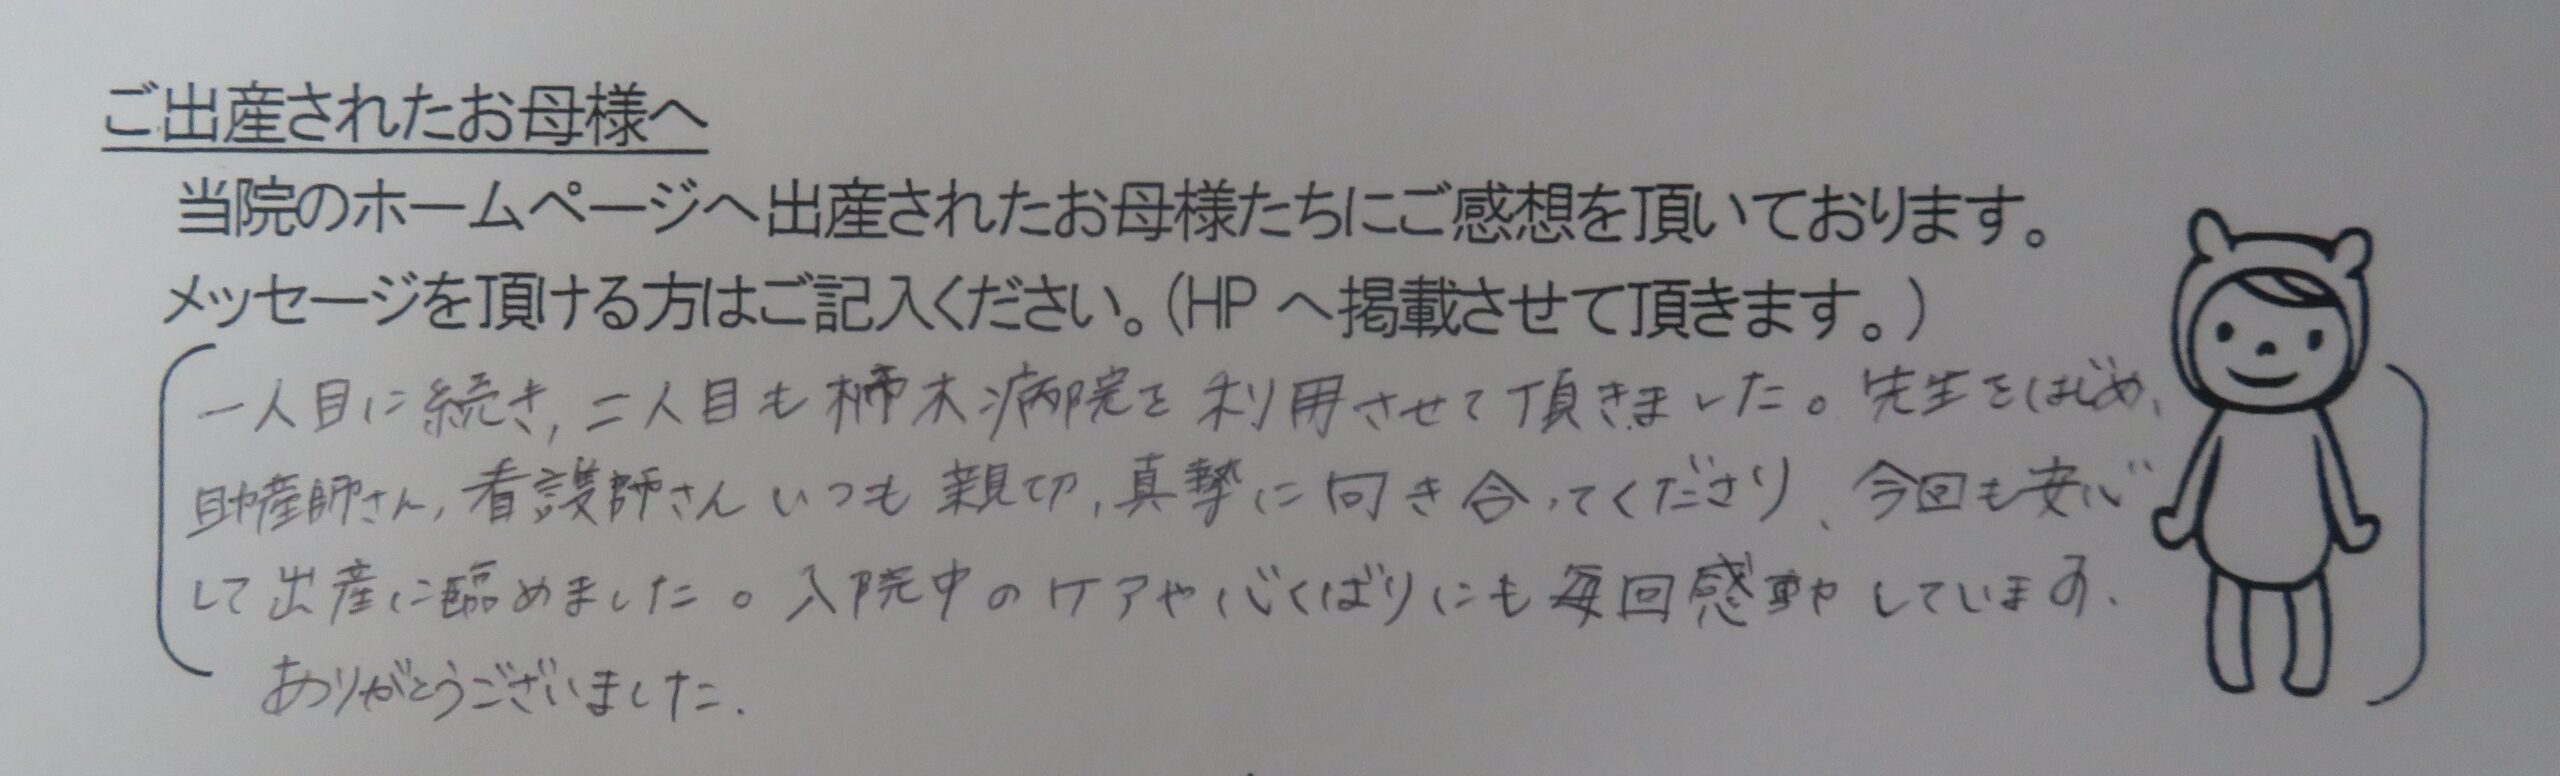 ご出産されたお母様へ
当院のホームページへ出産されたお母様たちにご感想を頂いております。
メッセージを頂ける方はご記入ください。(HP へ掲載させて頂きます。)
一人目に続き, 二人目も柿木病院を利用させて頂きました。先生をはじめ、
助産師さん, 看護師さんいつも親切, 真摯に向き合ってくださり、今回も安心
して出産に臨めました。入院中のケアや心くばりにも毎回感動しています.
ありがとうございました.